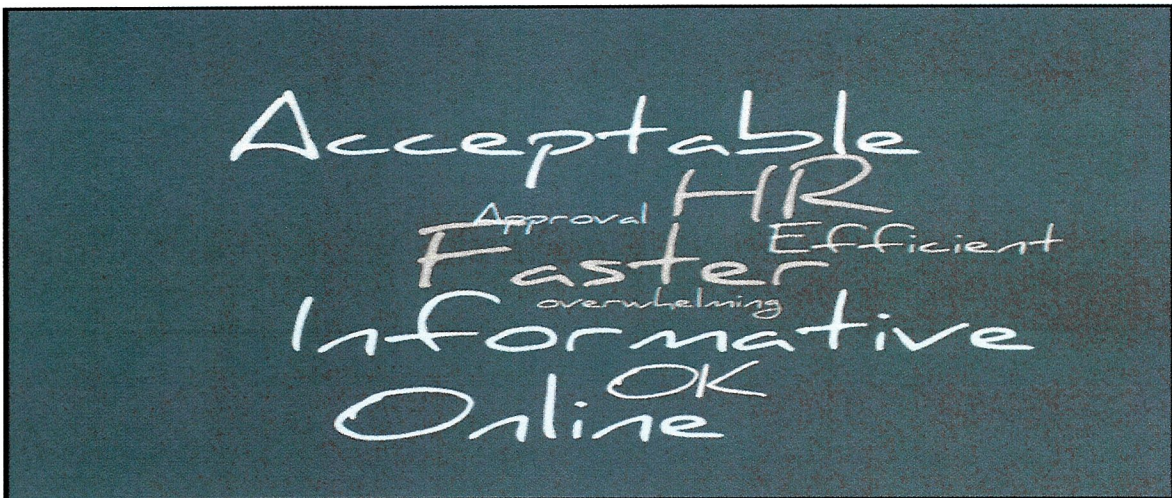 Acceptable
HR
Approval
Efficient
Faster
overwhelming
Informative
OK
Online